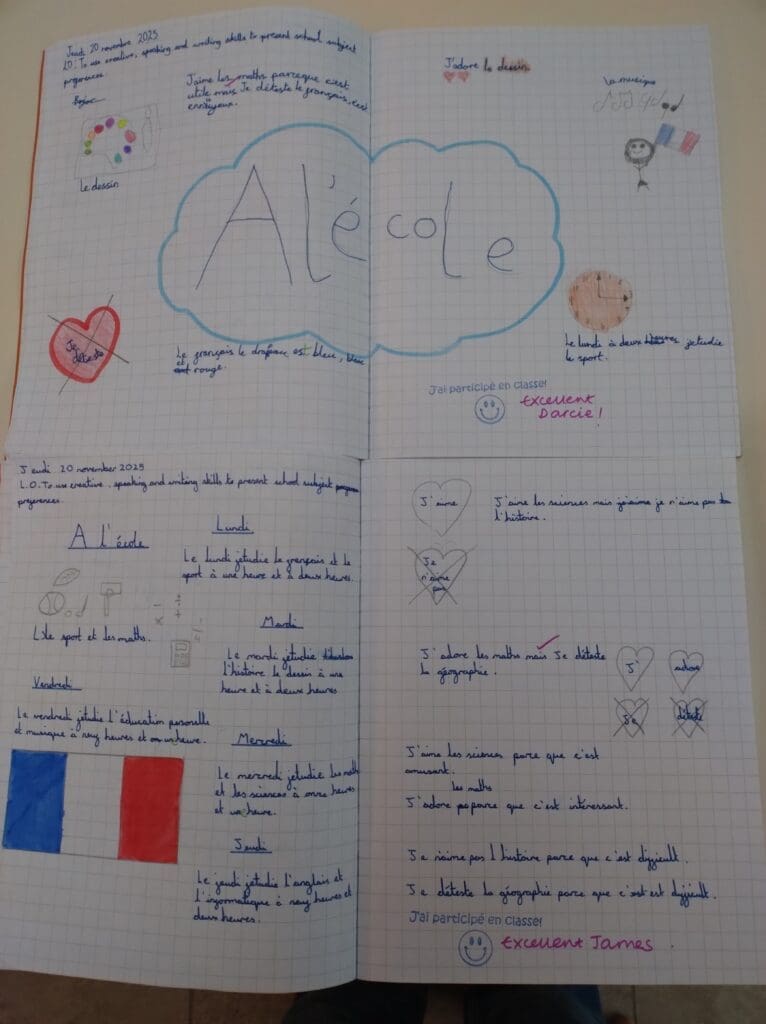 Jeudi 20 novembre 2025
LO: To use creative, speaking and writing skills to present school subject
preferences.
J'aime les maths parceque c'est
utile mais Je déteste le français, c'est
ennuyeux.
Le dessin
A l'école
Je
déteste
Le français le drapeau est bleu, blanc
et rouge.
J'adore le dessin
La musique
Le lundi à deux heures jetudie
le sport.
J'ai participé en classe!
Excellent
Darcie!
Jeudi 20 november 2025
L.O. To use creative, speaking and writing skills to present school subject
preferences.
A l'école
Lundi
Le lundi jetudie le français et le
sport à une heure et à deux heures.
Mardi
Le mardi jetudie
l'histoire le dessin à une
heure et à deux heures
Le sport et les maths.
Vendredi
Le vendredi jetudie l'éducation personelle
et musique à neuf heures et un heure.
Mercredi
Le mercredi jetudie les maths
et les sciences à onze heures
et une heure.
Jeudi
Le jeudi jetudie l'anglais et
l'informatique à neuf heures et
deux heures.
J'aime
J'aime les sciences mais je n'aime pas
l'histoire.
Je
n'aime
pas
J'adore les maths mais Je déteste
la géographie.
J'
adore
Je
déteste
J'aime les sciences parce que c'est
amusant.
les maths
J'adore parce que c'est intéressant.
Je n'aime pas l'histoire parce que c'est difficult.
Je déteste la géographie parce que c'est est difficult.
J'ai participé en classe!
Excellent James